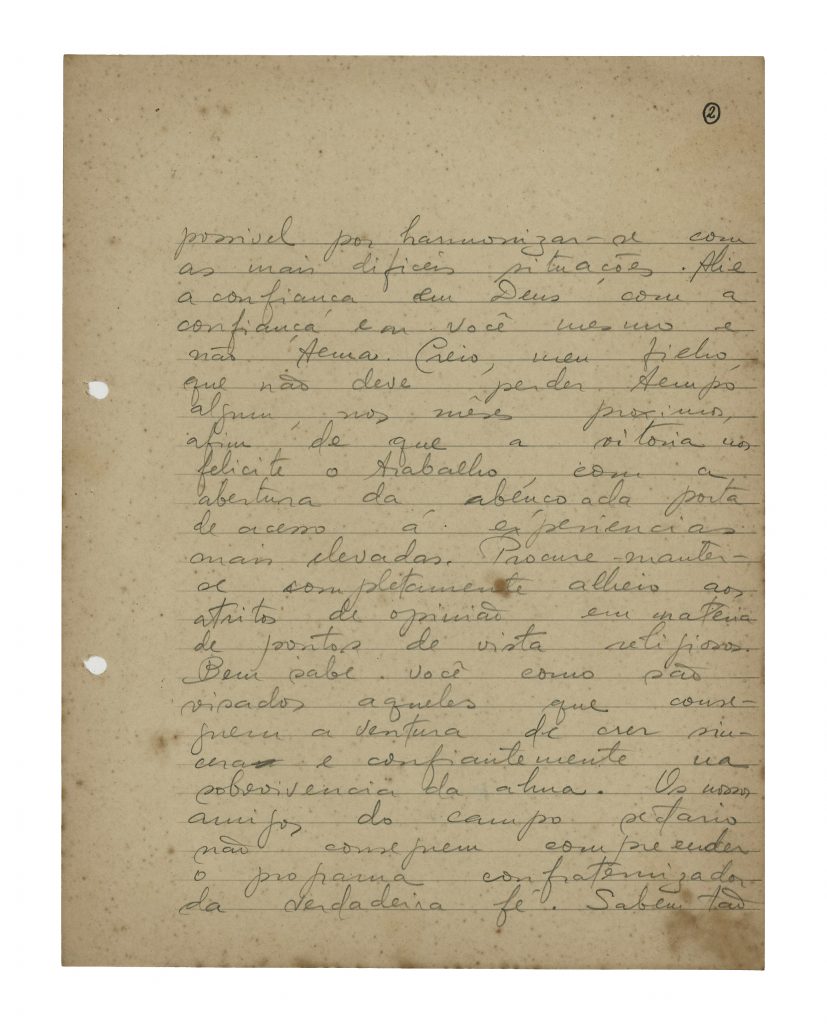 2
possivel por harmonizar-se com
as mais dificeis situações. Alie
a confiança em Deus com a
confiança em você mesmo e
não tema. Creio, meu filho,
que não deve perder tempo
algum, nos mêses proximos,
afim de que a vitoria nos
felicite o trabalho, com a
abertura da abençoada porta
de acesso á experiencias
mais elevadas. Procure manter-
se completamente alheio aos
atritos de opinião em matéria
de pontos de vista religiosos.
Bem sabe você como são
visados aqueles que conse-
guem a ventura de crer sin-
cera e confiantemente na
sobrevivencia da alma. Os nossos
amigos do campo setario
não conseguem compreender
o programa confraternizador
da verdadeira fé. Sabem tão